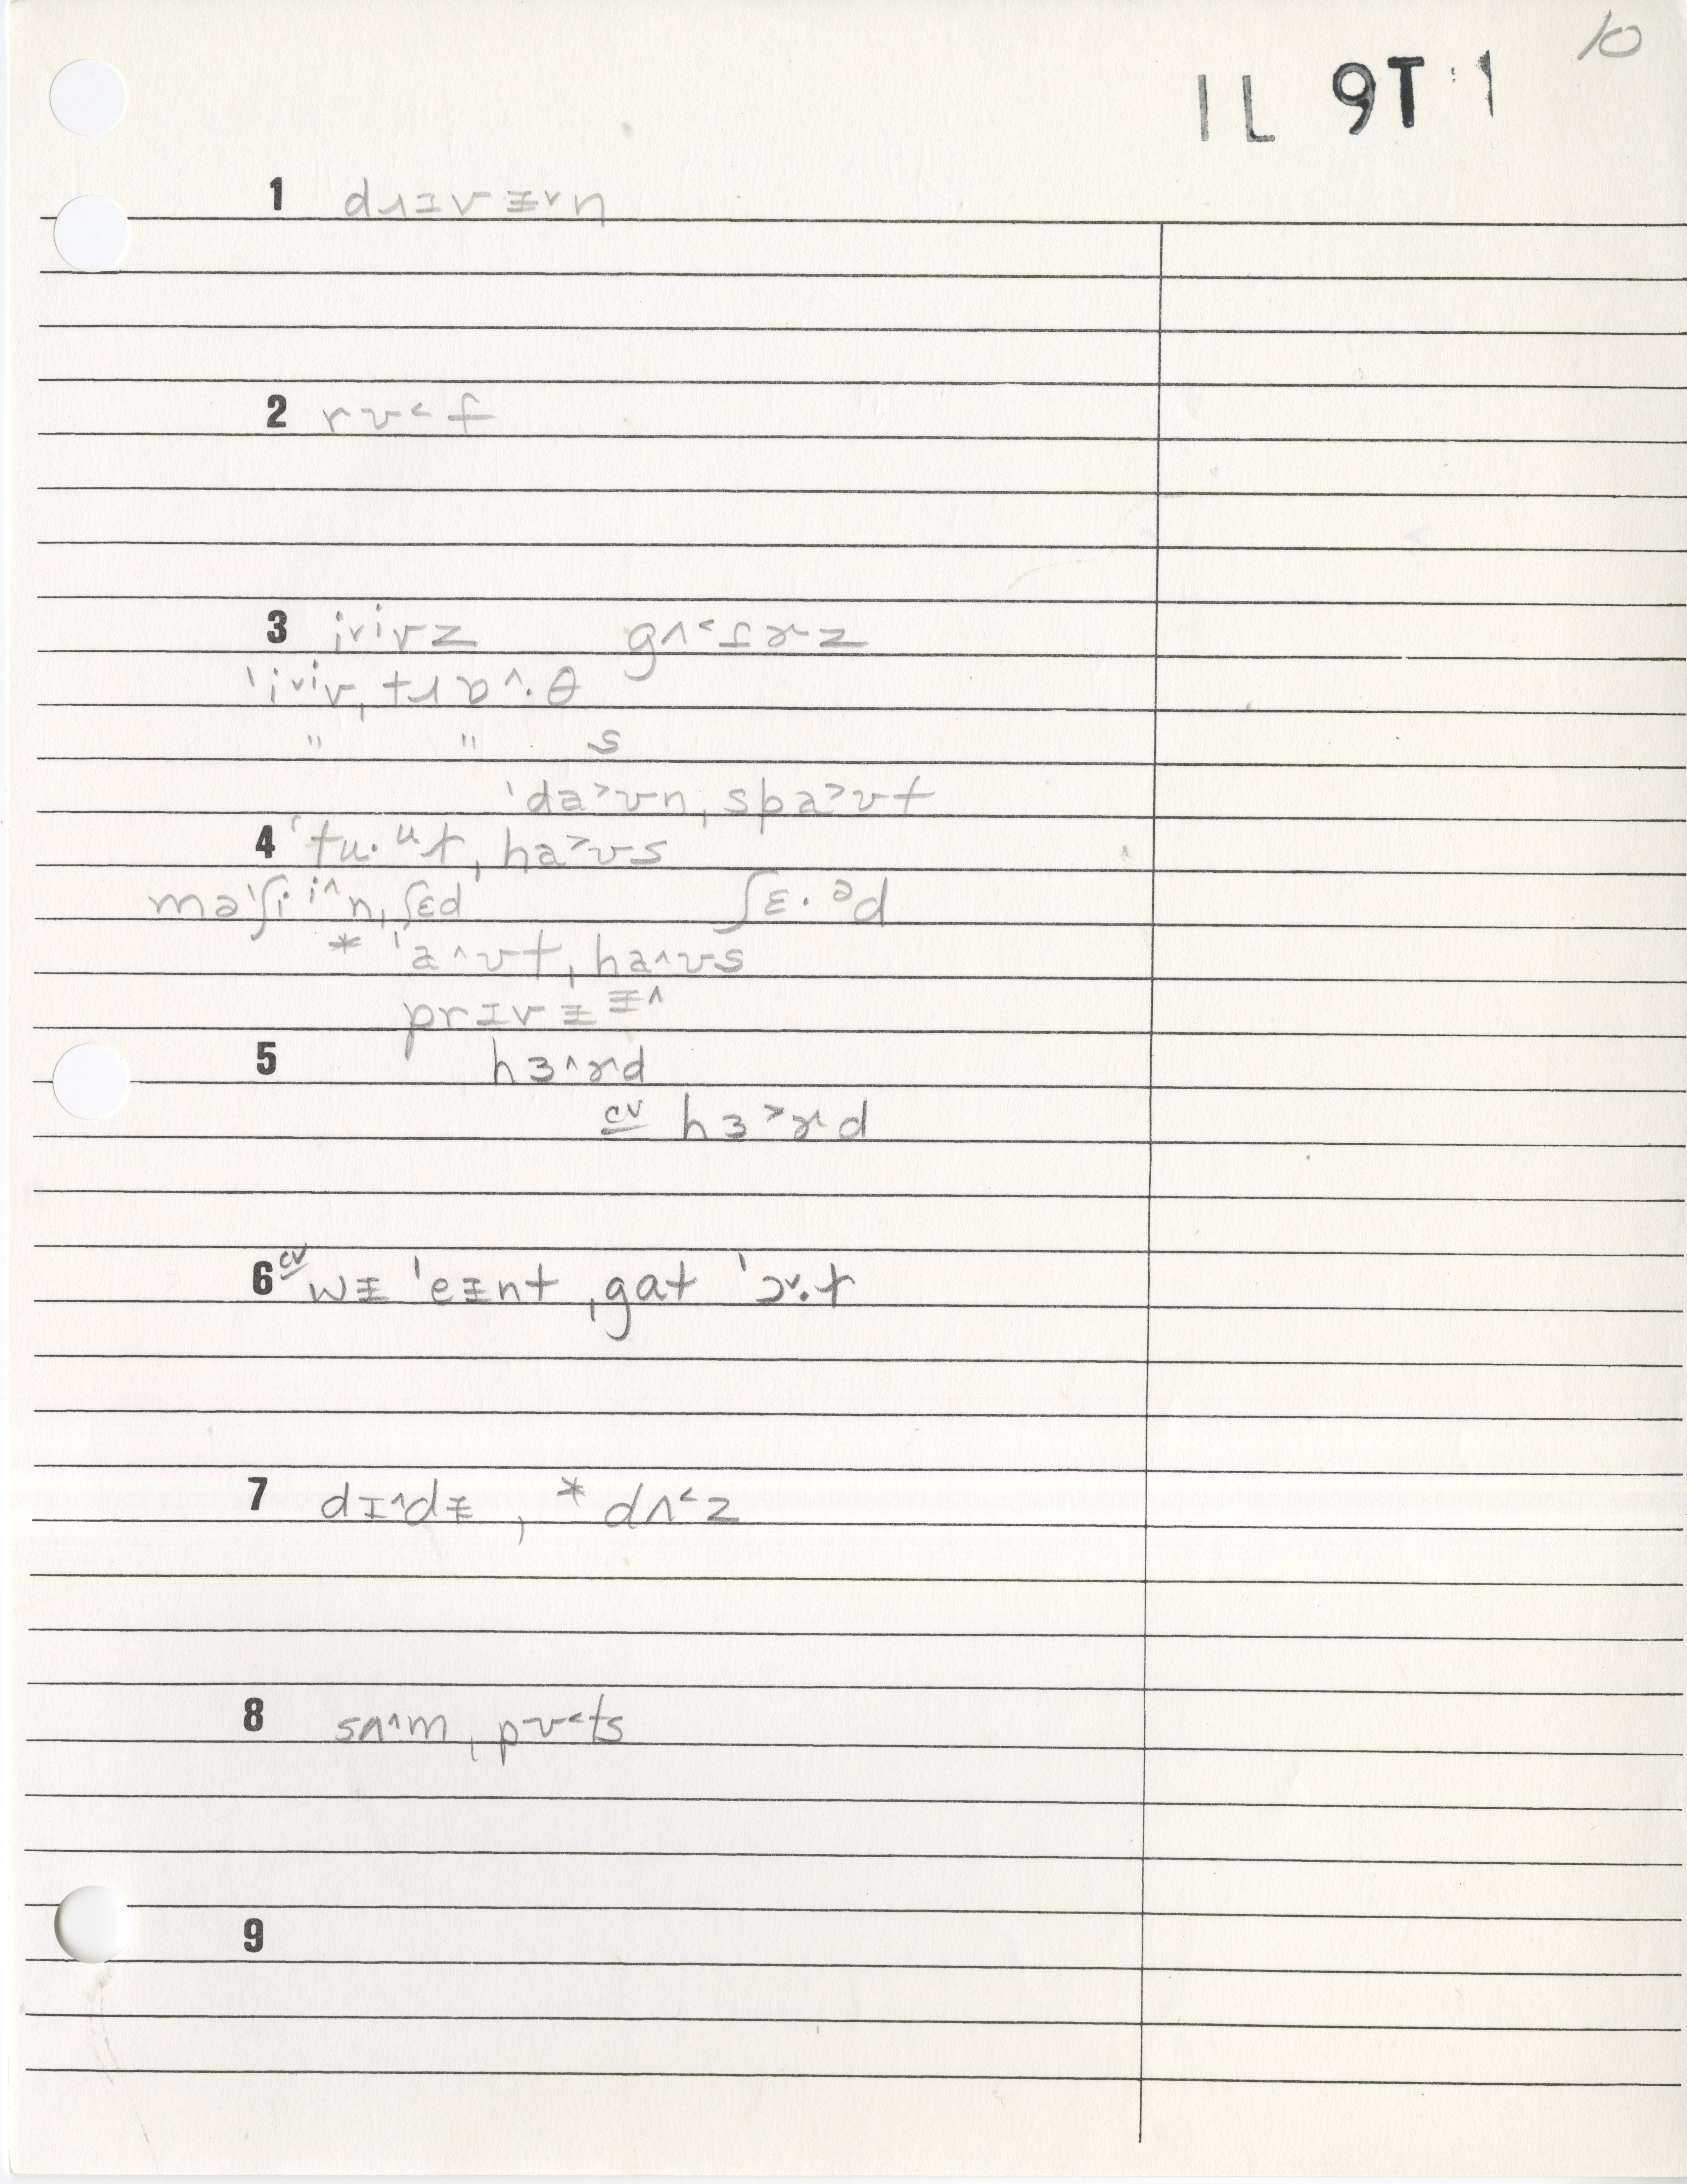 10
IL 9T 1
1 dɹɪvɨ˅n
2 rʊ˂f
3 i˅ivz gʌ˂ɾɚz
ˈi˅iv ˌtɹɒ˄·θ
" " s
ˈda˃ʊn ˌspa˃ʊt
4 ˈtu·ᵘɾ ˌha˃ʊs
məˈʃi·i˄n ˌʃɛd ʃɛ·ᵊd
* ˈa˄ʊt ˌha˄ʊs
prɪvɨᵻ˄
5 hɜ˄ɚd
cv hɜ˃ɚd
6 cv wɨ ˈeɨnt ˌgat ˈɔ˅·ɾ
7 dɪ˄dɨ , * dʌ˂z
8 sʌ˄m ˌpʊ˂ts
9